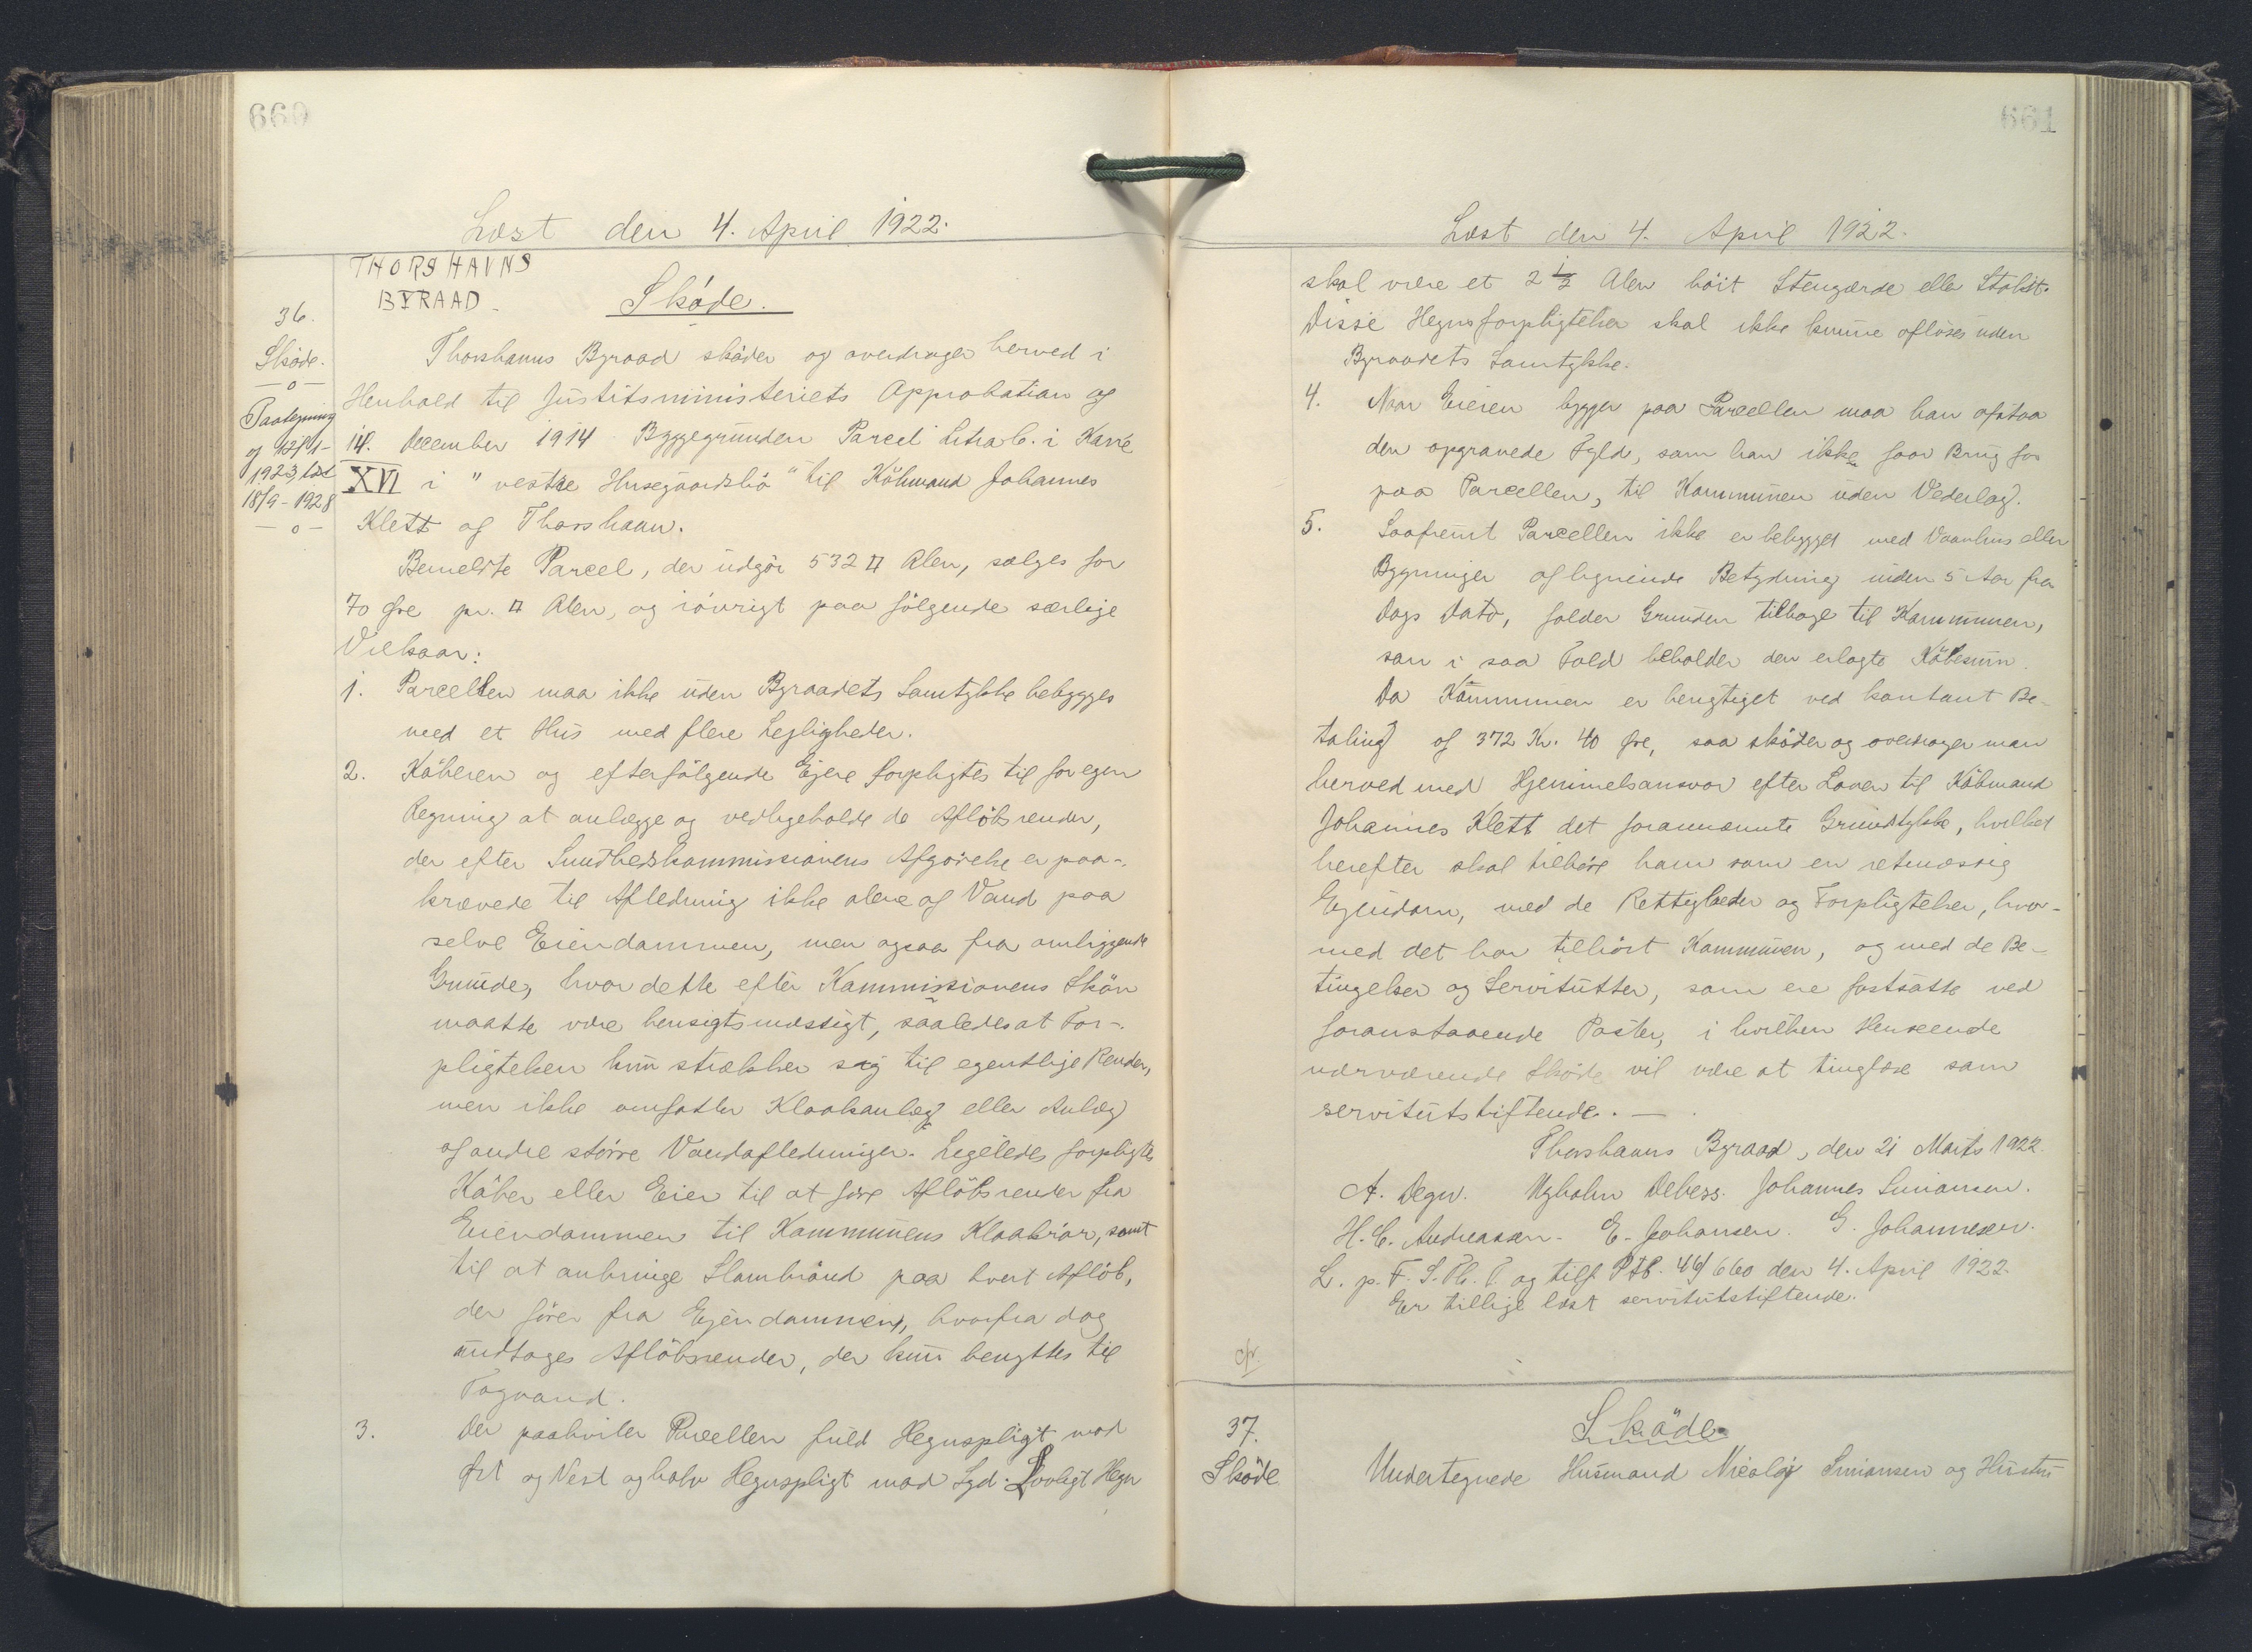 660
Læst den 4. April 1922.
THORSHAVNS
BYRAAD
Sköde.
36.
Sköde.
—o—
Paategning
af 12/1-
1923, læst
18/9-1928
—o—
Thorshavns Byraad sköder og overdrager herved i
Henhold til Justitsministeriets Approbation af
14. December 1914 Byggegrunden Parcel Litra C. i Karré
XVI i "vestre Husegaardsbö" til Köbmand Johannes
Klett af Thorshavn.
Bemeldte Parcel, der udgör 532 □ Alen, sælges for
70 Øre pr. □ Alen, og iövrigt paa fölgende særlige
Vilkaar:
1. Parcellen maa ikke uden Byraadets Samtykke bebygges
med et Hus med flere Lejligheder.
2. Köberen og efterfölgende Ejere forpligtes til for egen
Regning at anlægge og vedligeholde de Aflöbsrender,
der efter Sundhedskommissionens Afgörelse er paa-
krævede til Afledning ikke alene af Vand paa
selve Eiendommen, men ogsaa fra omliggende
Grunde, hvor dette efter Kommissionens Skön
maatte være hensigtsmæssigt, saaledes at For-
pligtelsen kun strækker sig til egentlige Render,
men ikke omfatter Kloakanlæg eller Anlæg
af andre större Vandafledninger. Ligeledes forpligtes
Köber eller Eier til at före Aflöbsrender fra
Eiendommen til Kommunens Kloakrör, samt
til at anbringe Slambrönd paa hvert Aflöb,
der förer fra Ejendommen, hvorfra dog
undtages Aflöbsrender, der kun benyttes til
Tagvand.
3. Der paahviler Parcellen fuld Hegnspligt mod
Øst og Vest og halv Hegnspligt mod Syd. Lovligt Hegn
661
Læst den 4. April 1922.
skal være et 2 1/2 Alen höit Stengærde eller Stakit.
Disse Hegnsforpligtelser skal ikke kunne aflöses uden
Byraadets Samtykke.
4. Naar Eieren bygger paa Parcellen maa han afstaa
den opgravede Fyld, som han ikke faar Brug for
paa Parcellen, til Kommunen uden Vederlag.
5. Saafremt Parcellen ikke er bebygget med Vaanhus eller
Bygninger af lignende Betydning inden 5 Aar fra
Dags Dato, falder Grunden tilbage til Kommunen,
som i saa Fald beholder den erlagte Köbesum.
Da Kommunen er benyttiget ved kontant Be-
taling af 372 Kr. 40 Øre, saa sköder og overdrager man
herved med Hjemmelsansvar efter Loven til Köbmand
Johannes Klett det forannævnte Grundstykke, hvilket
herefter skal tilhöre ham som en retmæssig
Ejendom, med de Rettigheder og Forpligtelser, hvor-
med det har tilhört Kommunen, og med de Be-
tingelser og Servitutter, som ere fastsatte ved
foranstaaende Poster, i hvilken Henseende
nærværende Sköde vil være at tinglæse som
servitutstiftende. —
Thorshavns Byraad, den 21 Marts 1922.
A. Degn. Debess. Johannes Simonsen.
H. C. Andreasen. E. Johansen. G. Johannesen.
L. p. F. S. Th. T. og tilf. Ptb. 44/660 den 4. April 1922.
Er tillige læst servitutstiftende.
cfr.
37.
Sköde
Sköde.
Undertegnede Husmand Nicolaj Simonsen og Hustru